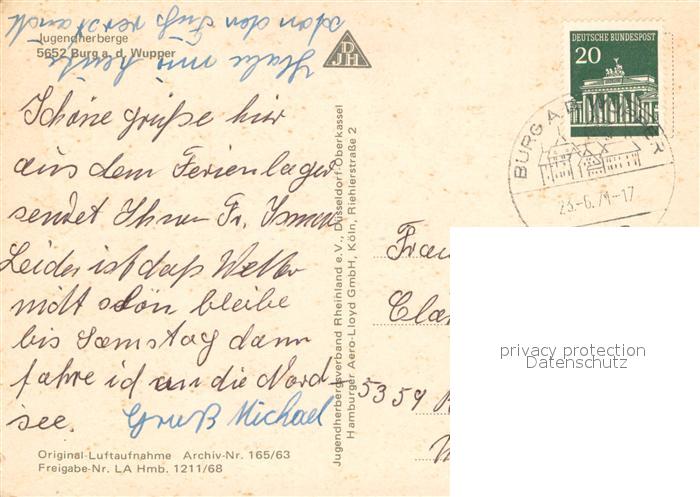 Jugendherberge
5652 Burg a. d. Wupper
Habe mir heute
schon den Fuß verstaucht
DJH
DEUTSCHE BUNDESPOST
20
BURG A.D. WUPPER
23.-6.71-17
Schöne grüße hir
aus dem Ferienlager
sendet Ihnen Fr.
Leider ist daß Wetter
nicht schön bleibe
bis Samstag dann
fahre ich an die Nord-
see. Gruß Michael
Jugendherbergsverband Rheinland e.V., Düsseldorf-Oberkassel
Hamburger Aero-Lloyd GmbH, Köln, Riehlerstraße 2
Frau
Cla
5359
Original-Luftaufnahme Archiv-Nr. 165/63
Freigabe-Nr. LA Hmb. 1211/68
privacy protection
Datenschutz